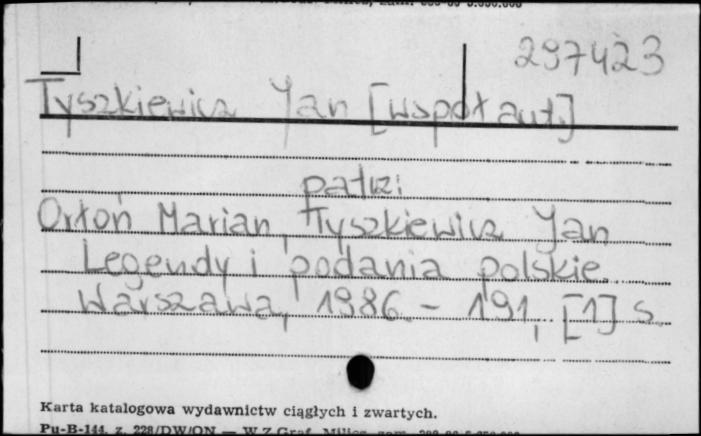 297423
Tyszkiewicz Jan [współaut.]
patrz:
Orłoń Marian, Tyszkiewicz Jan
Legendy i podania polskie.
Warszawa, 1986. - 191, [1] s.
Karta katalogowa wydawnictw ciągłych i zwartych.
Pu-B-144. z. 228/DW/ON — W.Z.Graf.